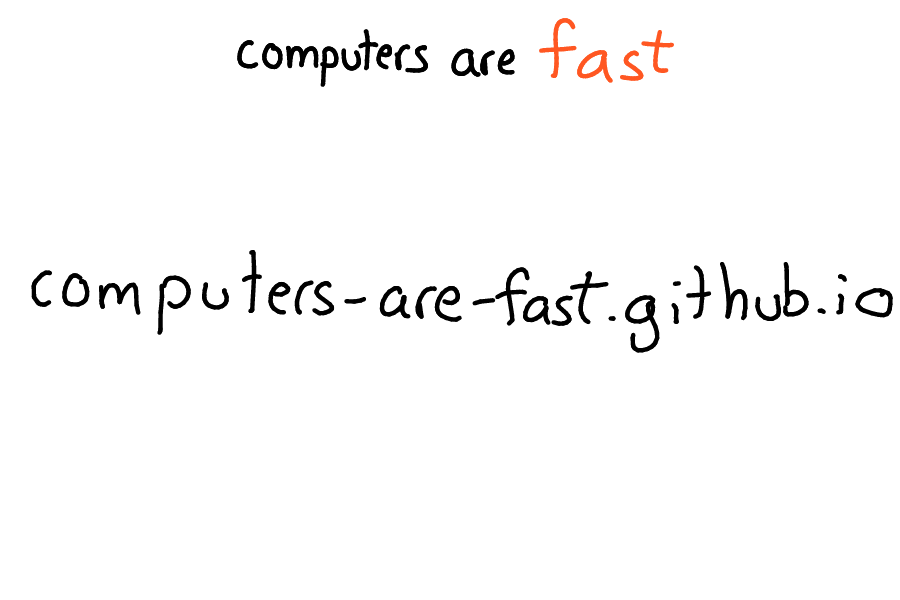 computers are fast
computers-are-fast.github.io